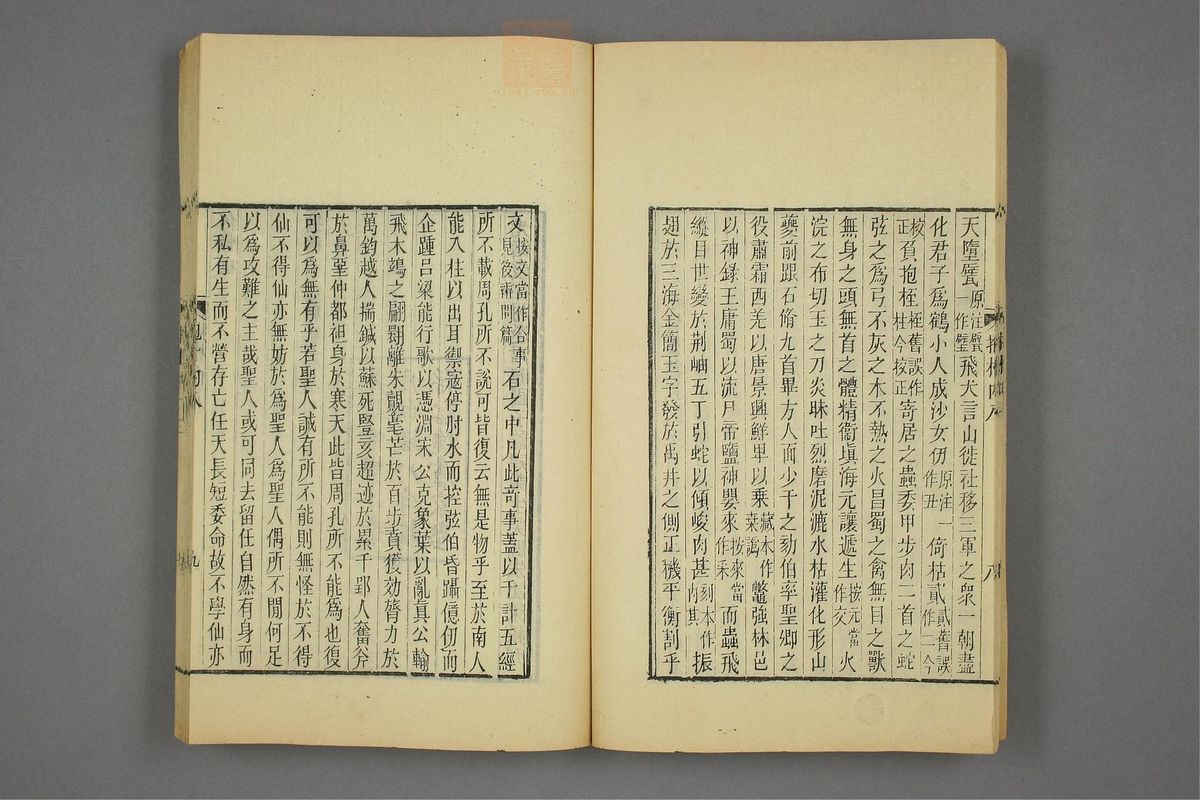 天墮甓原注甓一作璧飛犬言山徙社移三軍之眾一朝盡
化君子爲鶴小人成沙女仞原注一作丑倚枯貳貳舊誤作二今
校正負抱桎桎舊誤作桂今按正寄居之蟲委甲步肉二首之蛇
弦之爲弓不灰之木不熱之火昌蜀之禽無目之獸
無身之頭無首之體精衞塡海元讓遞生按元當作交火
浣之布切玉之刀炎昧吐烈磨泥漉水枯灌化形山
夔前跟石脩九首畢方人面少千之劾伯率聖卿之
役肅霜西羌以唐景興鮮卑以乘藏本作桒譌鼈強林邑
以神錄王庸蜀以流尸帝鹽神嬰來按來當作釆而蟲飛
縱目世變於荆岫五丁引蛇以傾峻肉甚刻本作肉其振
翅於三海金簡玉字發於禹井之側正機平衡割乎
文按文當作合事見後辨問篇石之中凡此奇事蓋以千計五經
所不載周孔所不說可皆復云無是物乎至於南人
能入柱以出耳禦寇停肘水而控弦伯昏躡億仞而
企踵呂梁能行歌以憑淵宋公克象葉以亂真公輸
飛木鴻之翩翾離朱覿毫芒於百步賁獲効膂力於
萬鈞越人揣鍼以蘇死豎亥超迹於累千郢人奮斧
於鼻堊仲都袒身於寒天此皆周孔所不能爲也復
可以爲無有乎若聖人誠有所不能則無怪於不得
仙不得仙亦無妨於爲聖人爲聖人偶所不閒何足
以爲攻難之主哉聖人或可同去留任自然有身而
不私有生而不營存亡任天長短委命故不學仙亦